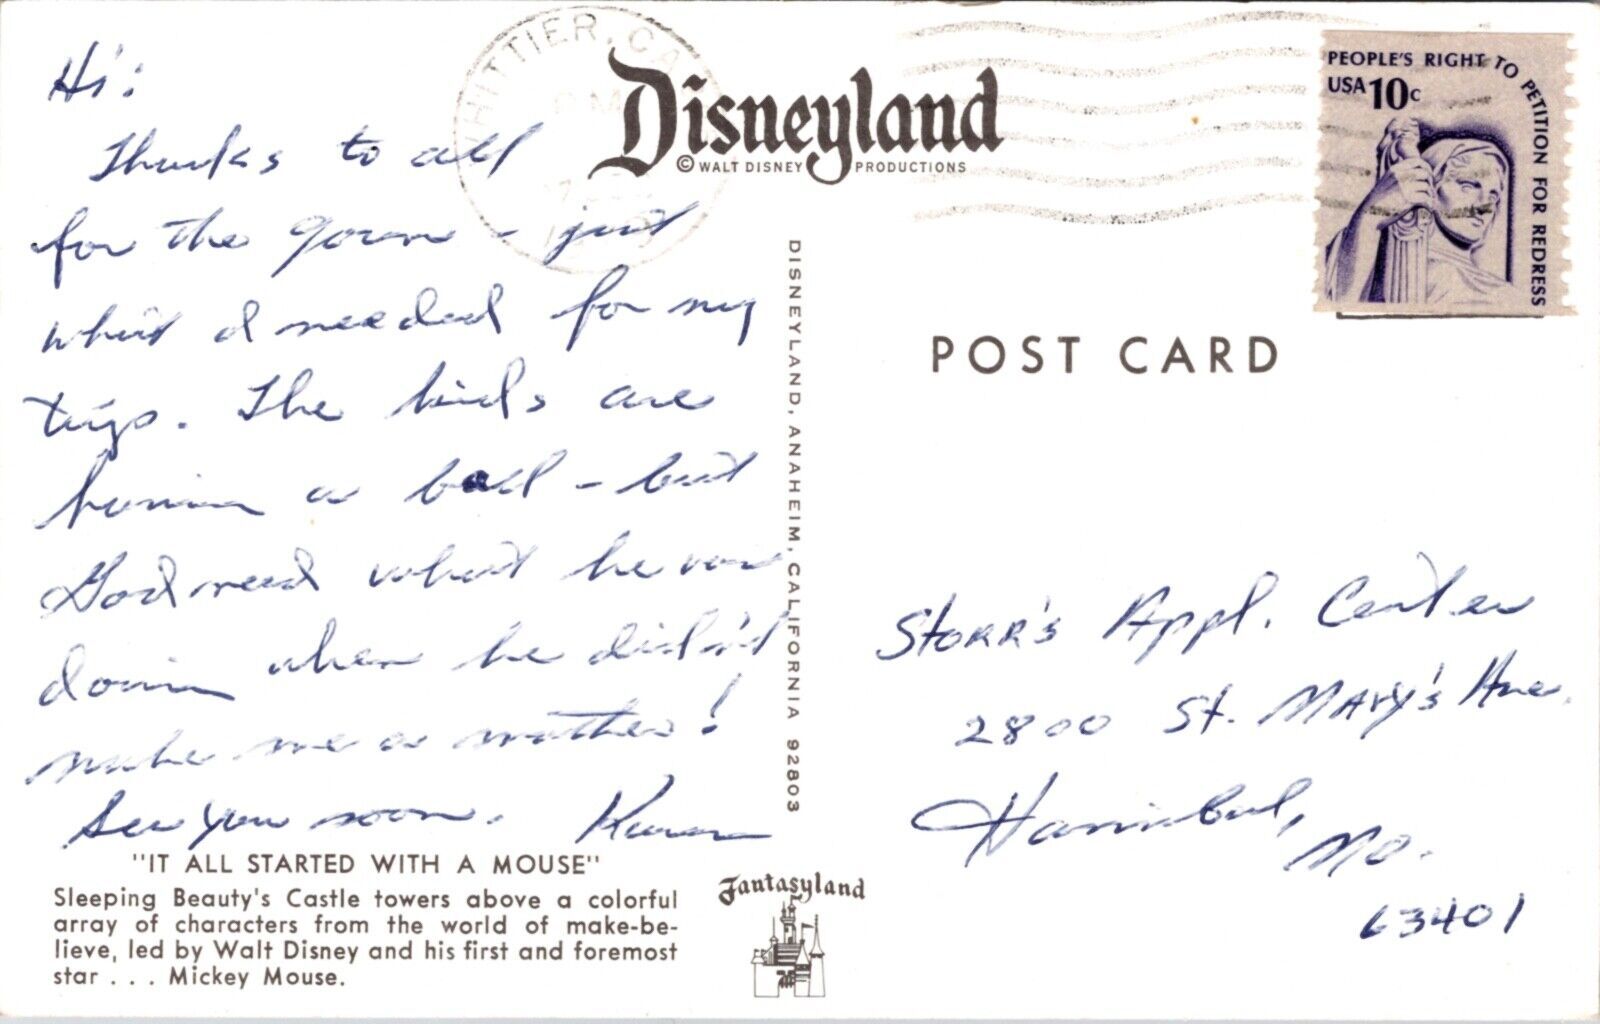 Hi:
Thanks to all
for the gown - just
what I needed for my
trip. The kids are
having a ball - but
God need what he was
doing when he didn't
make me a mother!
See you soon. Karen
"IT ALL STARTED WITH A MOUSE"
Sleeping Beauty's Castle towers above a colorful
array of characters from the world of make-be-
lieve, led by Walt Disney and his first and foremost
star . . . Mickey Mouse.
Fantasyland
WHITTIER, CA
PM
Disneyland
© WALT DISNEY PRODUCTIONS
DISNEYLAND, ANAHEIM, CALIFORNIA 92803
PEOPLE'S RIGHT TO PETITION FOR REDRESS
USA 10c
POST CARD
STORR'S Appl. Center
2800 St. MARY'S Ave.
Hannibal,
MO.
63401